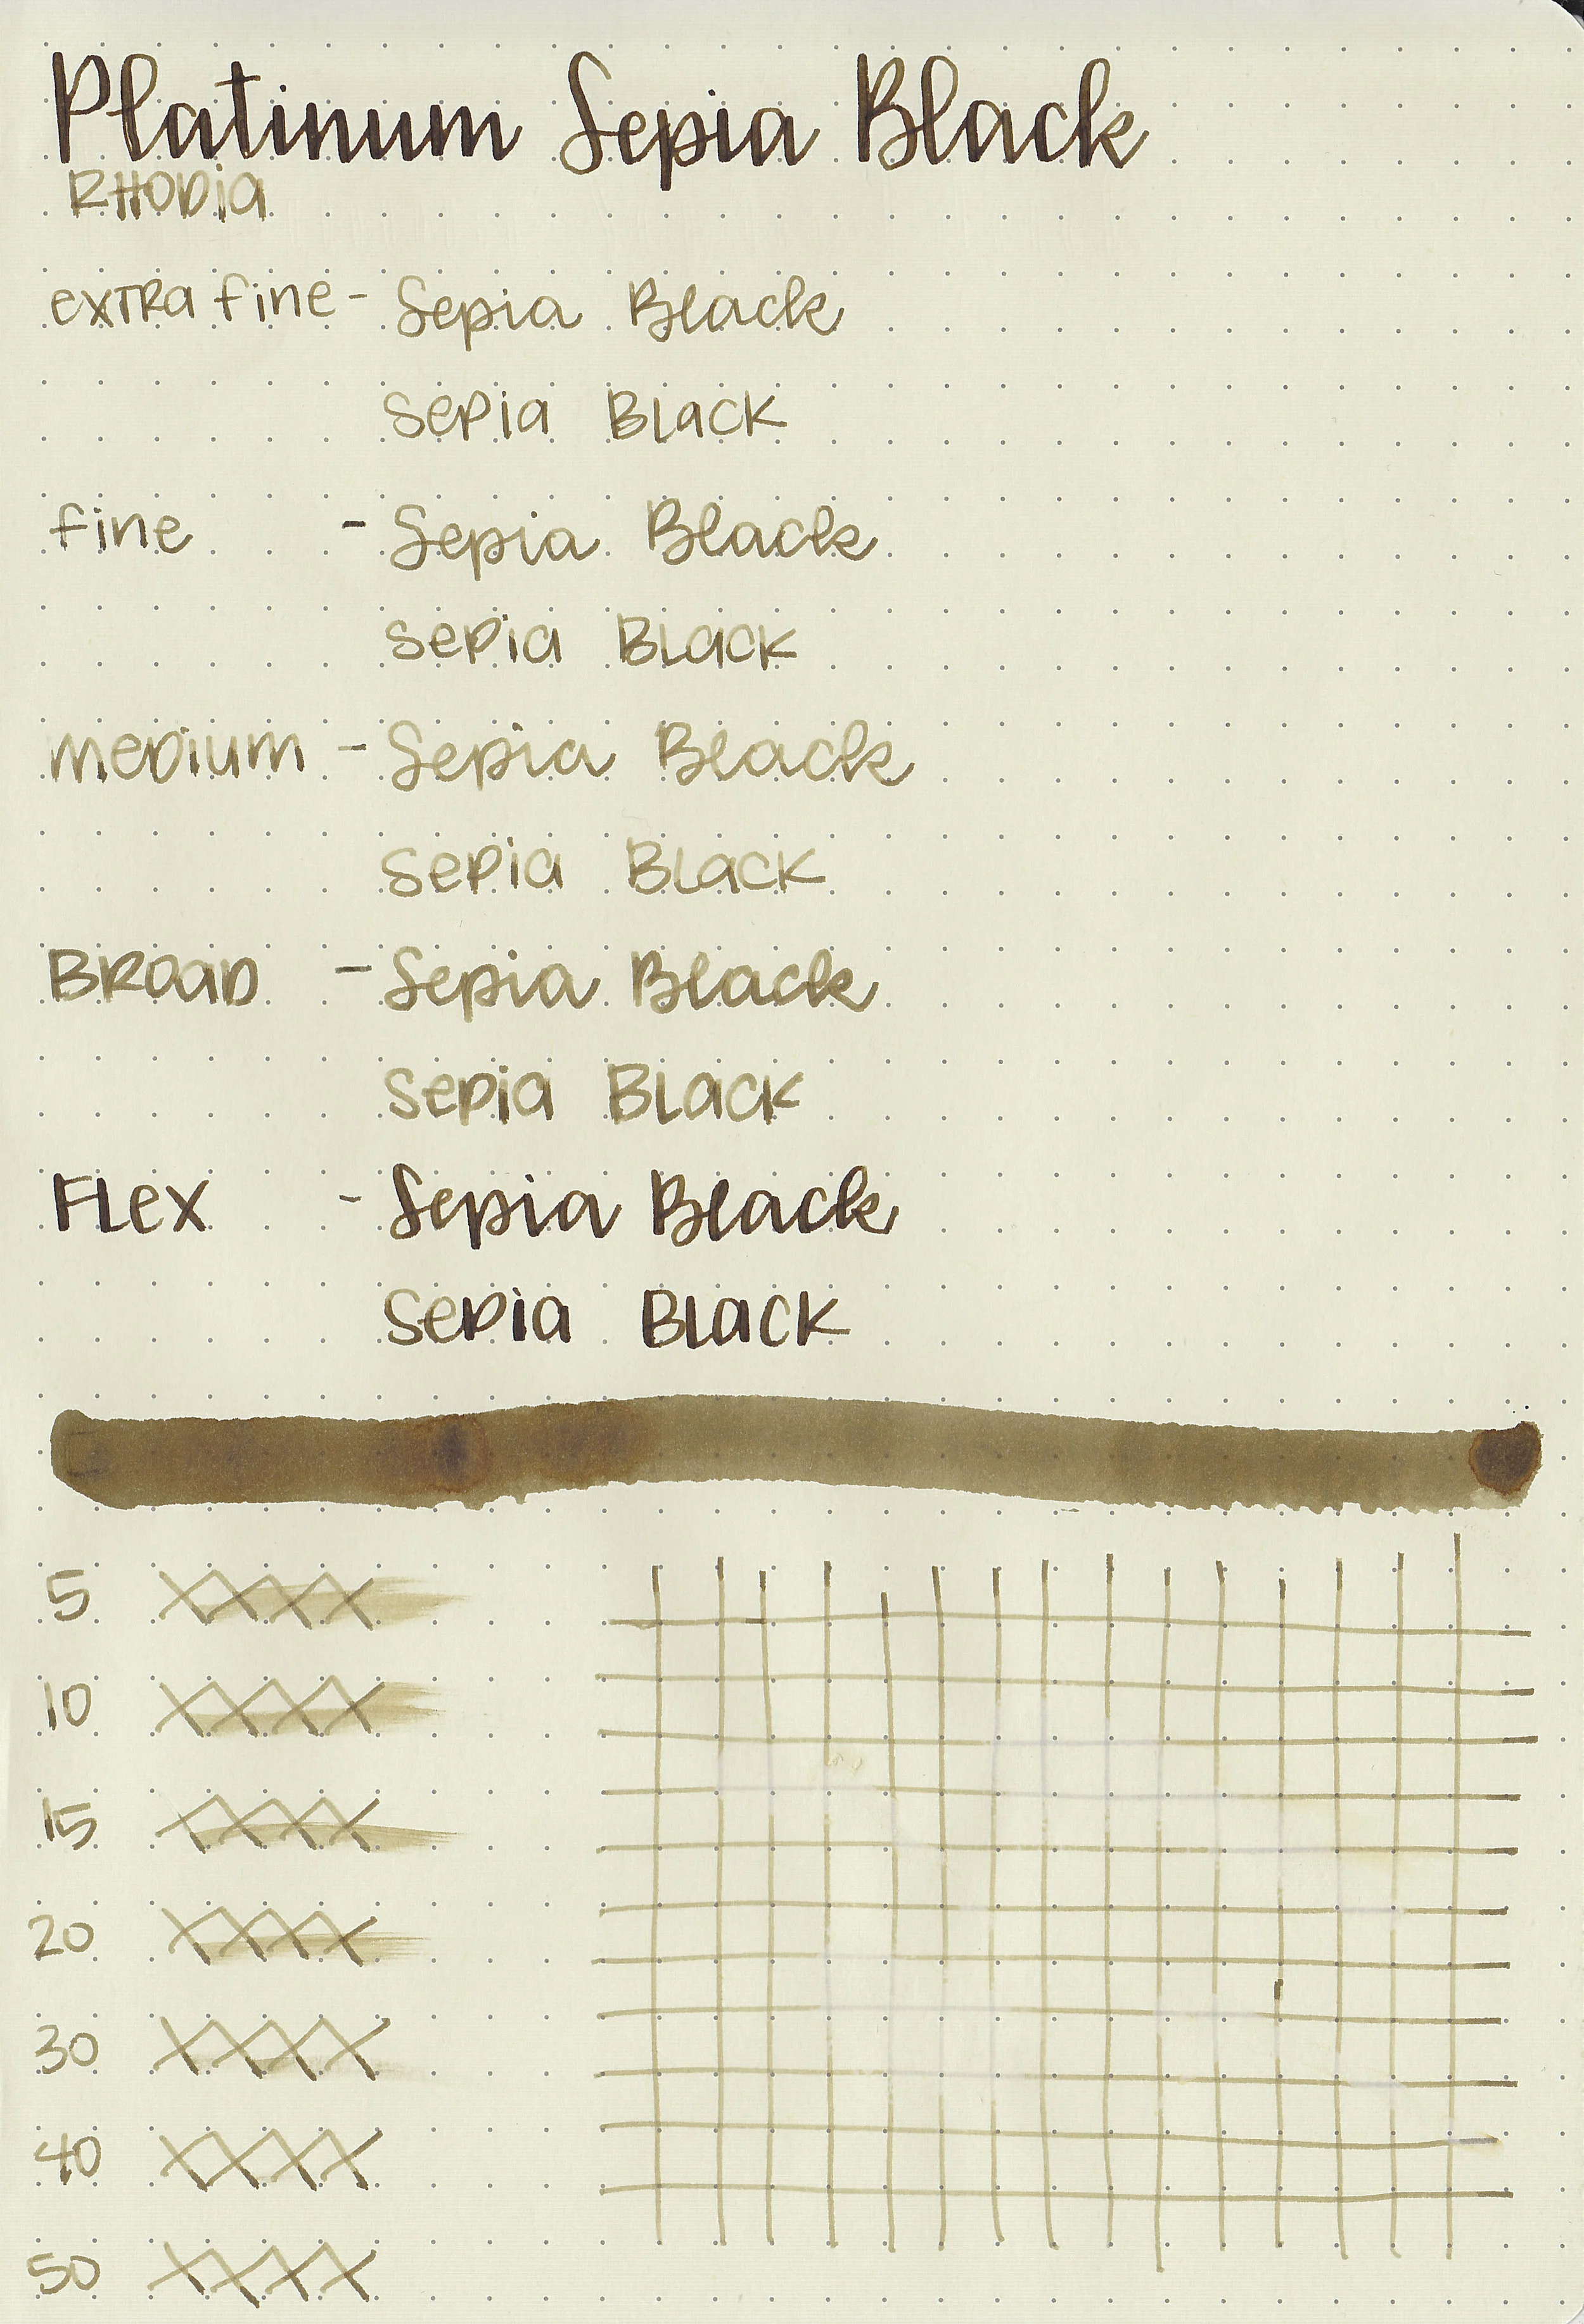 Platinum Sepia Black
RHODia
exTRa fine - Sepia Black
Sepia Black
fine - Sepia Black
Sepia Black
meDium - Sepia Black
Sepia Black
BRoaD - Sepia Black
Sepia Black
FLex - Sepia Black
Sepia BLack
5 XXXX
10 XXXX
15 XXXX
20 XXXX
30 XXXX
40 XXXX
50 XXXX